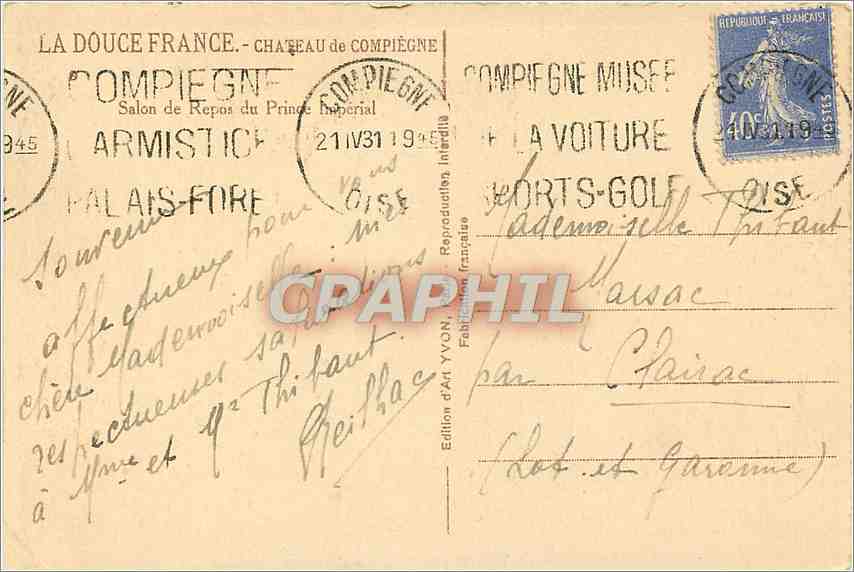 LA DOUCE FRANCE. - CHATEAU de COMPIÈGNE
Salon de Repos du Prince Impérial
COMPIEGNE
ARMISTICE
PALAIS-FORE
COMPIEGNE
21 IV 31 19 45
OISE
COMPIEGNE MUSEE
DE LA VOITURE
SPORTS-GOLF
REPUBLIQUE FRANÇAISE
40c
POSTES
COMPIEGNE
21 IV 31 19 45
OISE
GNE
9 45
Souvenir
affectueux pour vous
chère Mademoiselle : mes
respectueuses salutations
à Mme et Mr Thibaut.
Edition d'Art YVON, Paris. Reproduction interdite
Fabrication française
Mademoiselle Thibaut
Marsac
par Clairac
(Lot et Garonne)
CPAPHIL